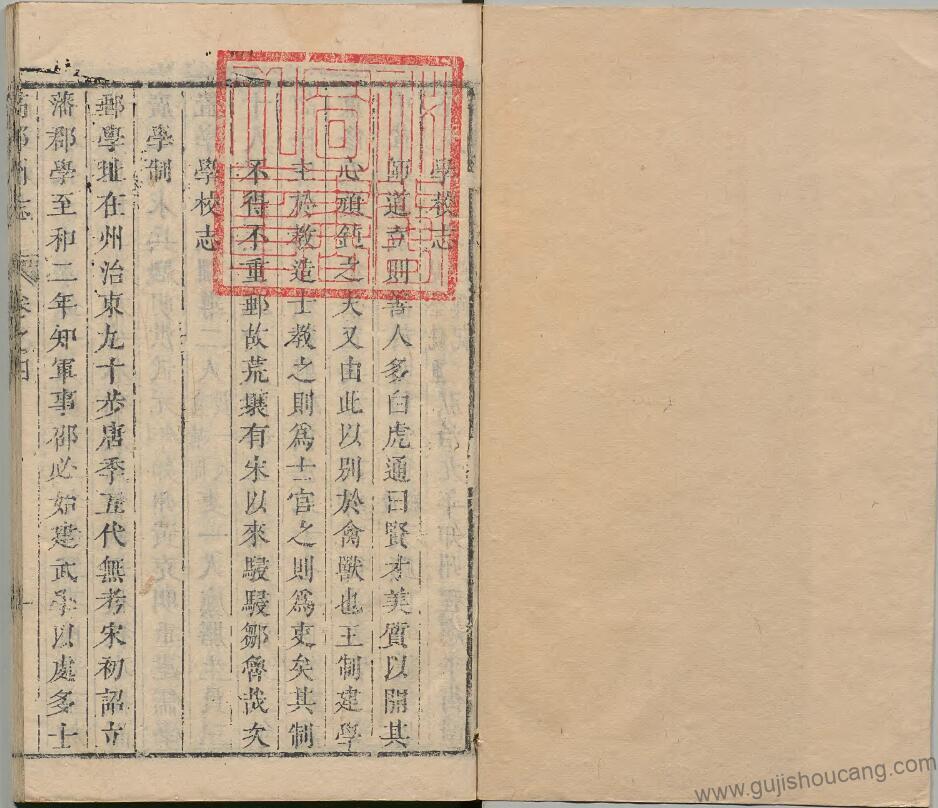 學校志
師道立則善人多白虎通曰賢才美質以開其
心頑鈍之夫又由此以別於禽獸也王制建學
主於教造士教之則爲士官之則爲吏矣其制
不得不重郵故荒壤有宋以來駸駸鄒魯哉次
學校志
學制
郵學址在州治東九十步唐季五代無考宋初詔立
藩郡學至和二年知軍事邵必始建武學以處多士
高郵州志 卷之四 一
www.gujishoucang.com